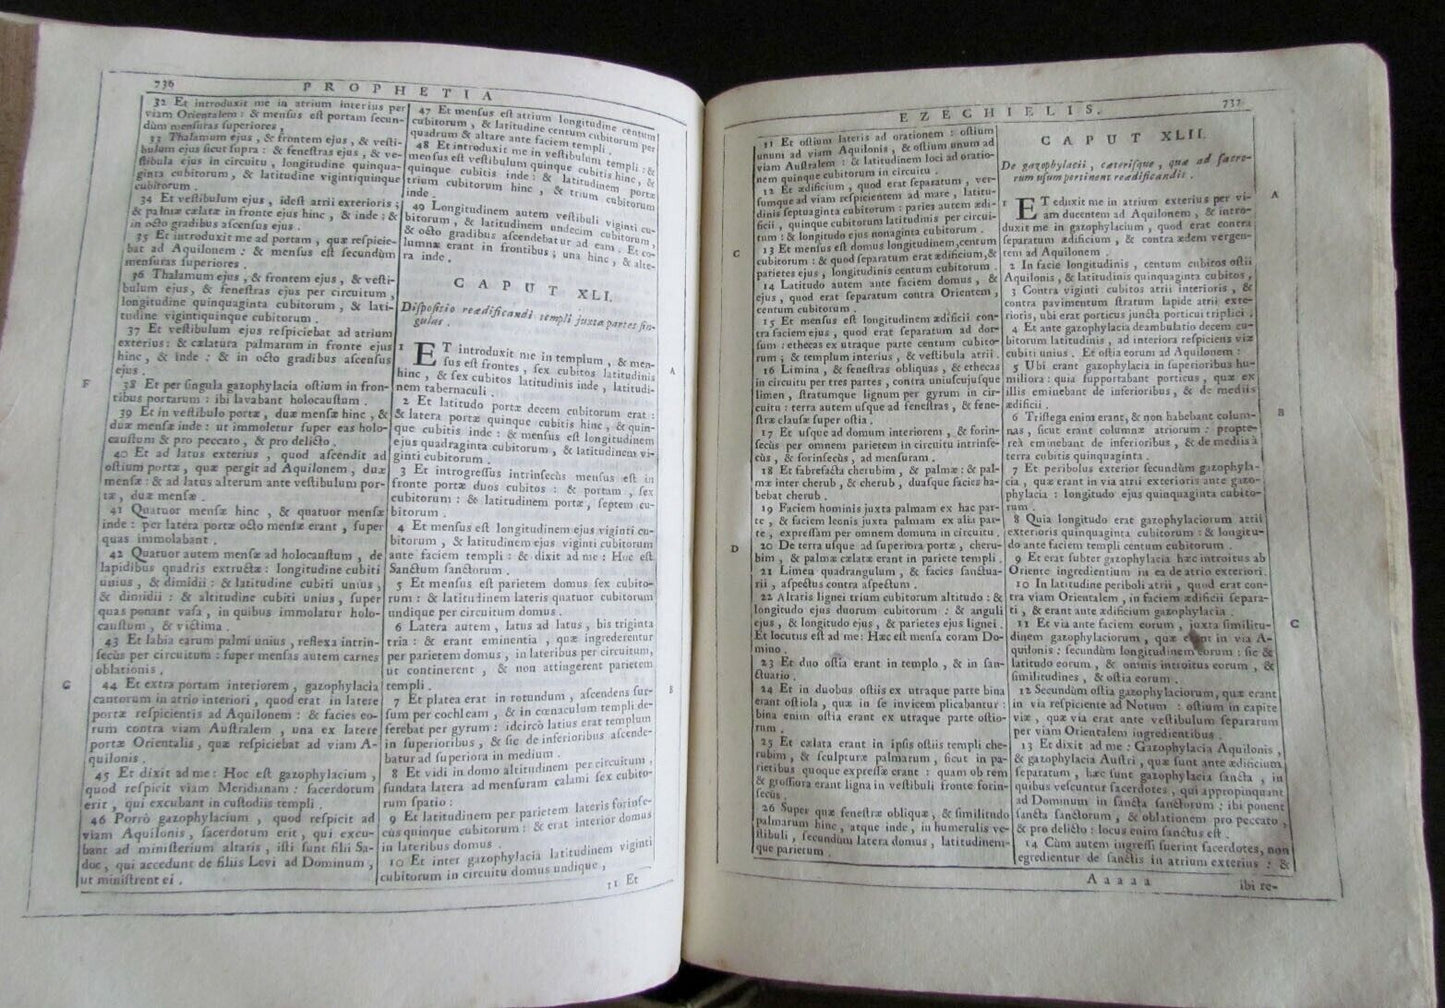 736
PROPHETIA
32 Et introduxit me in atrium interius per
viam Orientalem : & mensus est portam secun-
dùm mensuras superiores ,
33 Thalamum ejus , & frontem ejus , & vesti-
bulum ejus sicut supra : & fenestras ejus , & ve-
stibula ejus in circuitu , longitudine quinqua-
ginta cubitorum , & latitudine vigintiquinque
cubitorum .
34 Et vestibulum ejus , idest atrii exterioris ;
& palmæ cælatæ in fronte ejus hinc , & inde ; &
in octo gradibus ascensus ejus .
35 Et introduxit me ad portam , quæ respicie-
bat ad Aquilonem : & mensus est secundùm
mensuras superiores .
36 Thalamum ejus , & frontem ejus , & vesti-
bulum ejus , & fenestras ejus per circuitum ,
longitudine quinquaginta cubitorum , & lati-
tudine vigintiquinque cubitorum .
37 Et vestibulum ejus respiciebat ad atrium
exterius : & cælatura palmarum in fronte ejus
hinc , & inde : & in octo gradibus ascensus
ejus .
F
38 Et per singula gazophylacia ostium in fron-
tibus portarum : ibi lavabant holocaustum .
39 Et in vestibulo portæ , duæ mensæ hinc , &
duæ mensæ inde : ut immoletur super eas holo-
caustum & pro peccato , & pro delicto .
40 Et ad latus exterius , quod ascendit ad
ostium portæ , quæ pergit ad Aquilonem , duæ
mensæ : & ad latus alterum ante vestibulum por-
tæ , duæ mensæ .
41 Quatuor mensæ hinc , & quatuor mensæ
inde : per latera portæ octo mensæ erant , super
quas immolabant .
42 Quatuor autem mensæ ad holocaustum , de
lapidibus quadris extructæ : longitudine cubiti
unius , & dimidii : & latitudine cubiti unius ,
& dimidii : & altitudine cubiti unius , super
quas ponant vasa , in quibus immolatur holo-
caustum , & victima .
43 Et labia earum palmi unius , reflexa intrin-
secùs per circuitum : super mensas autem carnes
oblationis .
G
44 Et extra portam interiorem , gazophylacia
cantorum in atrio interiori , quod erat in latere
portæ respicientis ad Aquilonem : & facies eo-
rum contra viam Australem , una ex latere
portæ Orientalis , quæ respiciebat ad viam A-
quilonis .
45 Et dixit ad me : Hoc est gazophylacium ,
quod respicit viam Meridianam : sacerdotum
erit , qui excubant in custodiis templi .
46 Porrò gazophylacium , quod respicit ad
viam Aquilonis , sacerdotum erit , qui excu-
bant ad ministerium altaris , isti sunt filii Sa-
doc , qui accedunt de filiis Levi ad Dominum ,
ut ministrent ei .
47 Et mensus est atrium longitudine centum
cubitorum , & latitudine centum cubitorum per
quadrum & altare ante faciem templi .
48 Et introduxit me in vestibulum templi : &
mensus est vestibulum quinque cubitis hinc , &
quinque cubitis inde : & latitudinem portæ
trium cubitorum hinc , & trium cubitorum
inde .
49 Longitudinem autem vestibuli viginti cu-
bitorum , & latitudinem undecim cubitorum ,
& octo gradibus ascendebatur ad eam . Et co-
lumnæ erant in frontibus ; una hinc , & alte-
ra inde .
CAPUT XLI.
Dispositio reædificandi templi juxta partes sin-
gulas .
1 ET introduxit me in templum , & men-
sus est frontes , sex cubitos latitudinis
hinc , & sex cubitos latitudinis inde , latitudi-
nem tabernaculi .
A
2 Et latitudo portæ decem cubitorum erat :
& latera portæ quinque cubitis hinc , & quin-
que cubitis inde : & mensus est longitudinem
ejus quadraginta cubitorum , & latitudinem vi-
ginti cubitorum .
3 Et introgressus intrinsecùs mensus est in
fronte portæ duos cubitos : & portam , sex
cubitorum : & latitudinem portæ , septem cu-
bitorum .
4 Et mensus est longitudinem ejus viginti cu-
bitorum , & latitudinem ejus viginti cubitorum
ante faciem templi : & dixit ad me : Hoc est
Sanctum sanctorum .
5 Et mensus est parietem domus sex cubito-
rum : & latitudinem lateris quatuor cubitorum
undique per circuitum domus .
6 Latera autem , latus ad latus , bis triginta
tria : & erant eminentia , quæ ingrederentur
per parietem domus , in lateribus per circuitum,
ut continerent , & non attingerent parietem
templi .
B
7 Et platea erat in rotundum , ascendens sur-
sum per cochleam , & in cœnaculum templi de-
ferebat per gyrum : idcircò latius erat templum
in superioribus , & sic de inferioribus ascende-
batur ad superiora in medium .
8 Et vidi in domo altitudinem per circuitum ,
fundata latera ad mensuram calami sex cubito-
rum spatio :
9 Et latitudinem per parietem lateris forinse-
cùs quinque cubitorum : & erat interior domus
in lateribus domus .
10 Et inter gazophylacia latitudinem viginti
cubitorum in circuitu domus undique ,
11 Et
EZECHIELIS.
737
11 Et ostium lateris ad orationem : ostium
unum ad viam Aquilonis , & ostium unum ad
viam Australem : & latitudinem loci ad oratio-
nem quinque cubitorum in circuitu .
12 Et ædificium , quod erat separatum , ver-
sumque ad viam respicientem ad mare , latitu-
dinis septuaginta cubitorum : paries autem ædi-
ficii , quinque cubitorum latitudinis per circui-
tum : & longitudo ejus nonaginta cubitorum .
C
13 Et mensus est domus longitudinem,centum
cubitorum : & quod separatum erat ædificium,&
parietes ejus , longitudinis centum cubitorum .
14 Latitudo autem ante faciem domus , &
ejus , quod erat separatum contra Orientem ,
centum cubitorum .
15 Et mensus est longitudinem ædificii con-
tra faciem ejus , quod erat separatum ad dor-
sum : ethecas ex utraque parte centum cubito-
rum ; & templum interius , & vestibula atrii .
16 Limina , & fenestras obliquas , & ethecas
in circuitu per tres partes , contra uniuscujusque
limen , stratumque lignum per gyrum in cir-
cuitu : terra autem usque ad fenestras , & fene-
stræ clausæ super ostia .
17 Et usque ad domum interiorem , & forin-
secùs per omnem parietem in circuitu intrinse-
cùs , & forinsecùs , ad mensuram .
18 Et fabrefacta cherubim , & palmæ : & pal-
mæ inter cherub , & cherub , duasque facies ha-
bebat cherub .
19 Faciem hominis juxta palmam ex hac par-
te , & faciem leonis juxta palmam ex alia par-
te , expressam per omnem domum in circuitu .
D
20 De terra usque ad superiora portæ , cheru-
bim , & palmæ cælatæ erant in pariete templi .
21 Limen quadrangulum , & facies sanctua-
rii , aspectus contra aspectum .
22 Altaris lignei trium cubitorum altitudo : &
longitudo ejus duorum cubitorum : & anguli
ejus , & longitudo ejus , & parietes ejus lignei .
Et locutus est ad me : Hæc est mensa coram Do-
mino .
23 Et duo ostia erant in templo , & in san-
ctuario .
24 Et in duobus ostiis ex utraque parte bina
erant ostiola , quæ in se invicem plicabantur :
bina enim ostia erant ex utraque parte ostio-
rum .
25 Et cælata erant in ipsis ostiis templi che-
rubim , & sculpturæ palmarum , sicut in pa-
rietibus quoque expressæ erant : quam ob rem
& grossiora erant ligna in vestibuli fronte forin-
secùs .
26 Super quæ fenestræ obliquæ , & similitudo
palmarum hinc , atque inde , in humerulis ve-
stibuli , secundùm latera domus , latitudinem-
que parietum .
CAPUT XLII.
De gazophylacii , cæterisque , quæ ad sacro-
rum usum pertinent reædificandis .
A
1 ET eduxit me in atrium exterius per vi-
am ducentem ad Aquilonem , & intro-
duxit me in gazophylacium , quod erat contra
separatum ædificium , & contra ædem vergen-
tem ad Aquilonem .
2 In facie longitudinis , centum cubitos ostii
Aquilonis , & latitudinis quinquaginta cubitos ,
3 Contra viginti cubitos atrii interioris , &
contra pavimentum stratum lapide atrii exte-
rioris, ubi erat porticus juncta porticui triplici .
4 Et ante gazophylacia deambulatio decem cu-
bitorum latitudinis , ad interiora respiciens viæ
cubiti unius . Et ostia eorum ad Aquilonem :
5 Ubi erant gazophylacia in superioribus hu-
miliora : quia supportabant porticus , quæ ex
illis eminebant de inferioribus , & de mediis
ædificii .
B
6 Tristega enim erant, & non habebant colum-
nas , sicut erant columnæ atriorum : propte-
reà eminebant de inferioribus , & de mediis à
terra cubitis quinquaginta .
7 Et peribolus exterior secundùm gazophyla-
cia , quæ erant in via atrii exterioris ante gazo-
phylacia : longitudo ejus quinquaginta cubito-
rum .
8 Quia longitudo erat gazophylaciorum atrii
exterioris quinquaginta cubitorum : & longitu-
do ante faciem templi centum cubitorum .
9 Et erat subter gazophylacia hæc introitus ab
Oriente ingredientium in ea de atrio exteriori .
10 In latitudine periboli atrii , quod erat con-
tra viam Orientalem , in faciem ædificii separa-
ti , & erant ante ædificium gazophylacia .
C
11 Et via ante faciem eorum , juxta similitu-
dinem gazophylaciorum , quæ erant in via A-
quilonis : secundùm longitudinem eorum : sic &
latitudo eorum , & omnis introitus eorum , &
similitudines , & ostia eorum .
12 Secundùm ostia gazophylaciorum, quæ erant
in via respiciente ad Notum : ostium in capite
viæ , quæ via erat ante vestibulum separatum
per viam Orientalem ingredientibus .
13 Et dixit ad me : Gazophylacia Aquilonis ,
& gazophylacia Austri , quæ sunt ante ædificium
separatum , hæc sunt gazophylacia sancta , in
quibus vescuntur sacerdotes , qui appropinquant
ad Dominum in sancta sanctorum : ibi ponent
sancta sanctorum , & oblationem pro peccato ,
& pro delicto : locus enim sanctus est .
14 Cùm autem ingressi fuerint sacerdotes, non
egredientur de sanctis in atrium exterius : &
Aaaaa
ibi re-